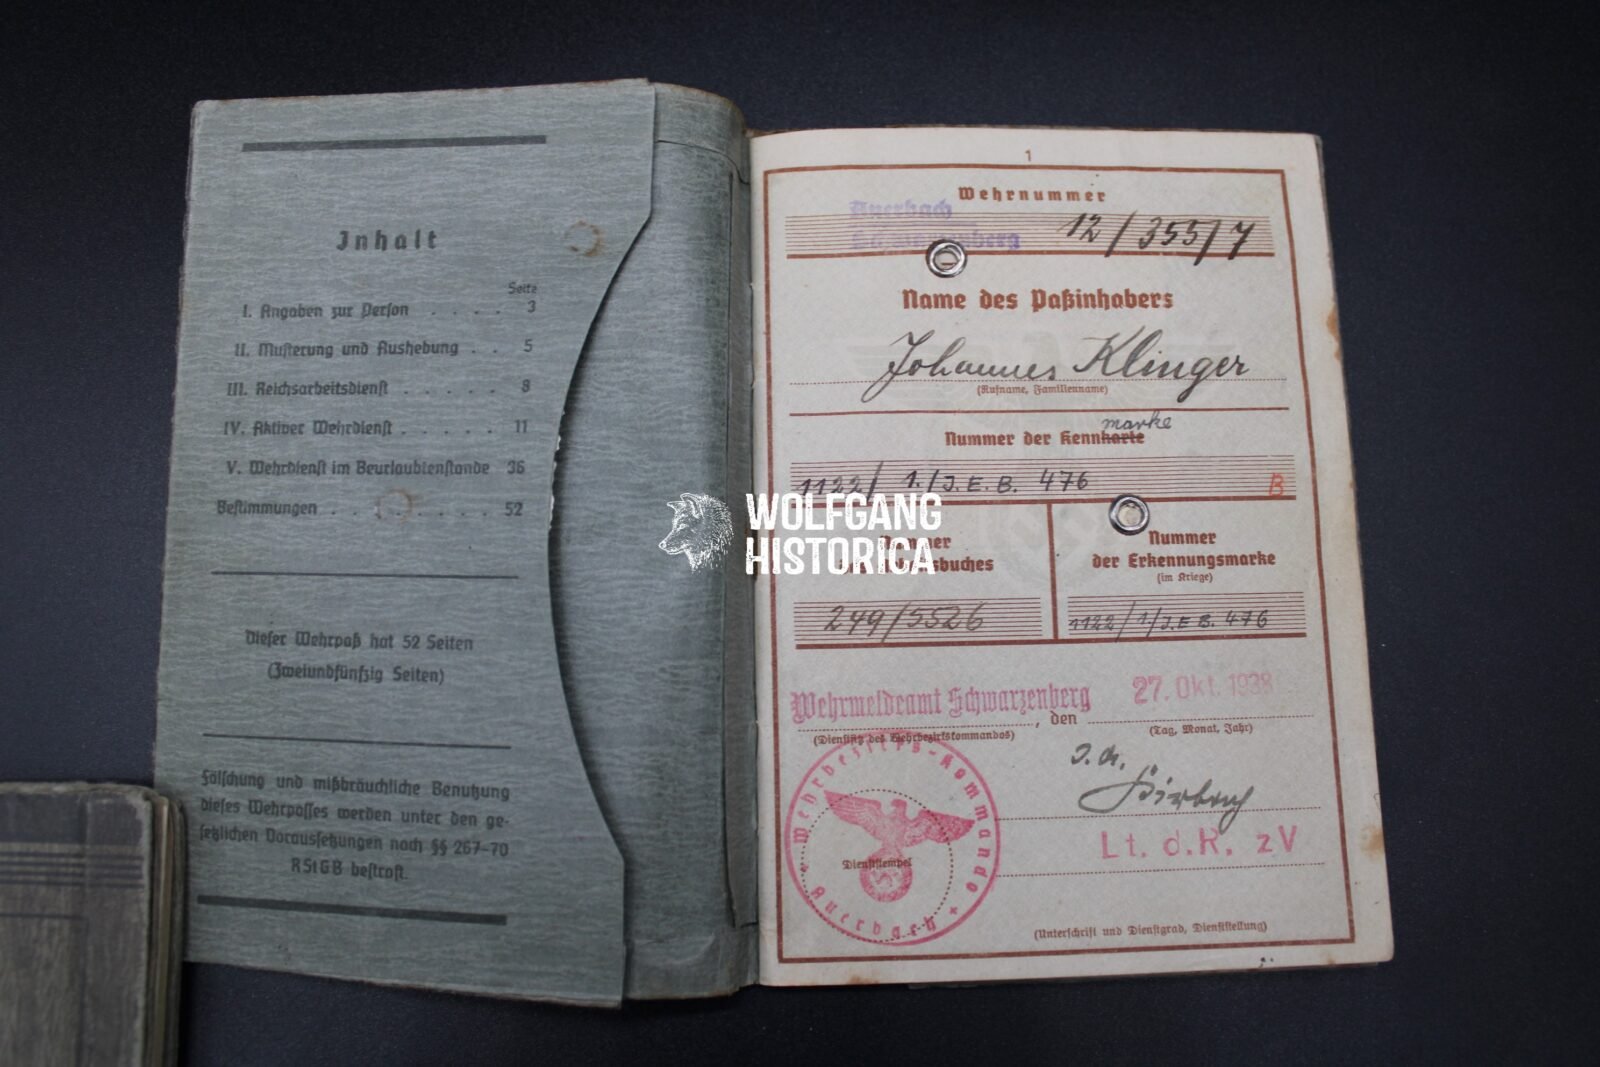 Inhalt
Seite
I. Angaben zur Person . . . . 3
II. Musterung und Aushebung . . 5
III. Reichsarbeitsdienst . . . . . 8
IV. Aktiver Wehrdienst . . . . . 11
V. Wehrdienst im Beurlaubtenstande 36
Bestimmungen . . . . . . . . 52
Dieser Wehrpaß hat 52 Seiten
(Zweiundfünfzig Seiten)
Fälschung und mißbräuchliche Benutzung
dieses Wehrpasses werden unter den ge-
setzlichen Voraussetzungen nach §§ 267-70
RStGB bestraft.
1
Wehrnummer
Auerbach
12/355/7
Name des Paßinhabers
Johannes Klinger
(Rufname, Familienname)
marke
Nummer der Kennkarte
1122/ 1./J.E.B. 476
B
WOLFGANG
HISTORICA
Nummer
der Erkennungsmarke
(im Kriege)
249/5526
1122/1/J.E.B. 476
Wehrmeldeamt Schwarzenberg, den 27. Okt. 1938
(Dienstsitz des Wehrbezirkskommandos)
(Tag, Monat, Jahr)
Wehrbezirks-Kommando
Auerbach
Dienststempel
Lt. d. R. zV
(Unterschrift und Dienstgrad, Dienststellung)